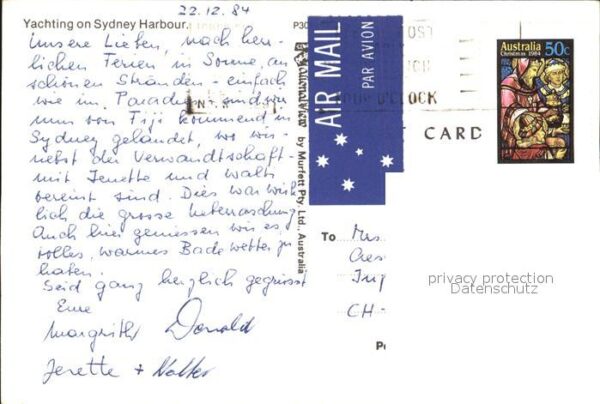 22.12.84
Yachting on Sydney Harbour.
Unsere Lieben, nach herr-
lichen Ferien in Sonne, an
schönen Stränden - einfach
wie im Paradies sind wir
nun von Fiji kommend in
Sydney gelandet, wo wir
nebst der Verwandtschaft
mit Jenette und Walti
vereint sind. Dies war wirk-
lich die grosse Ueberraschung
Auch hier geniessen wir es,
tolles, warmes Bade wetter zu
haben.
Seid ganz herzlich gegrüsst
Eure
Margrith Donald
Jenette + Walter
by Murfett Pty. Ltd., Australia
AIR MAIL
PAR AVION
POST
O'CLOCK
CARD
Australia 50c
Christmas 1984
To Mrs
CH -
privacy protection
Datenschutz